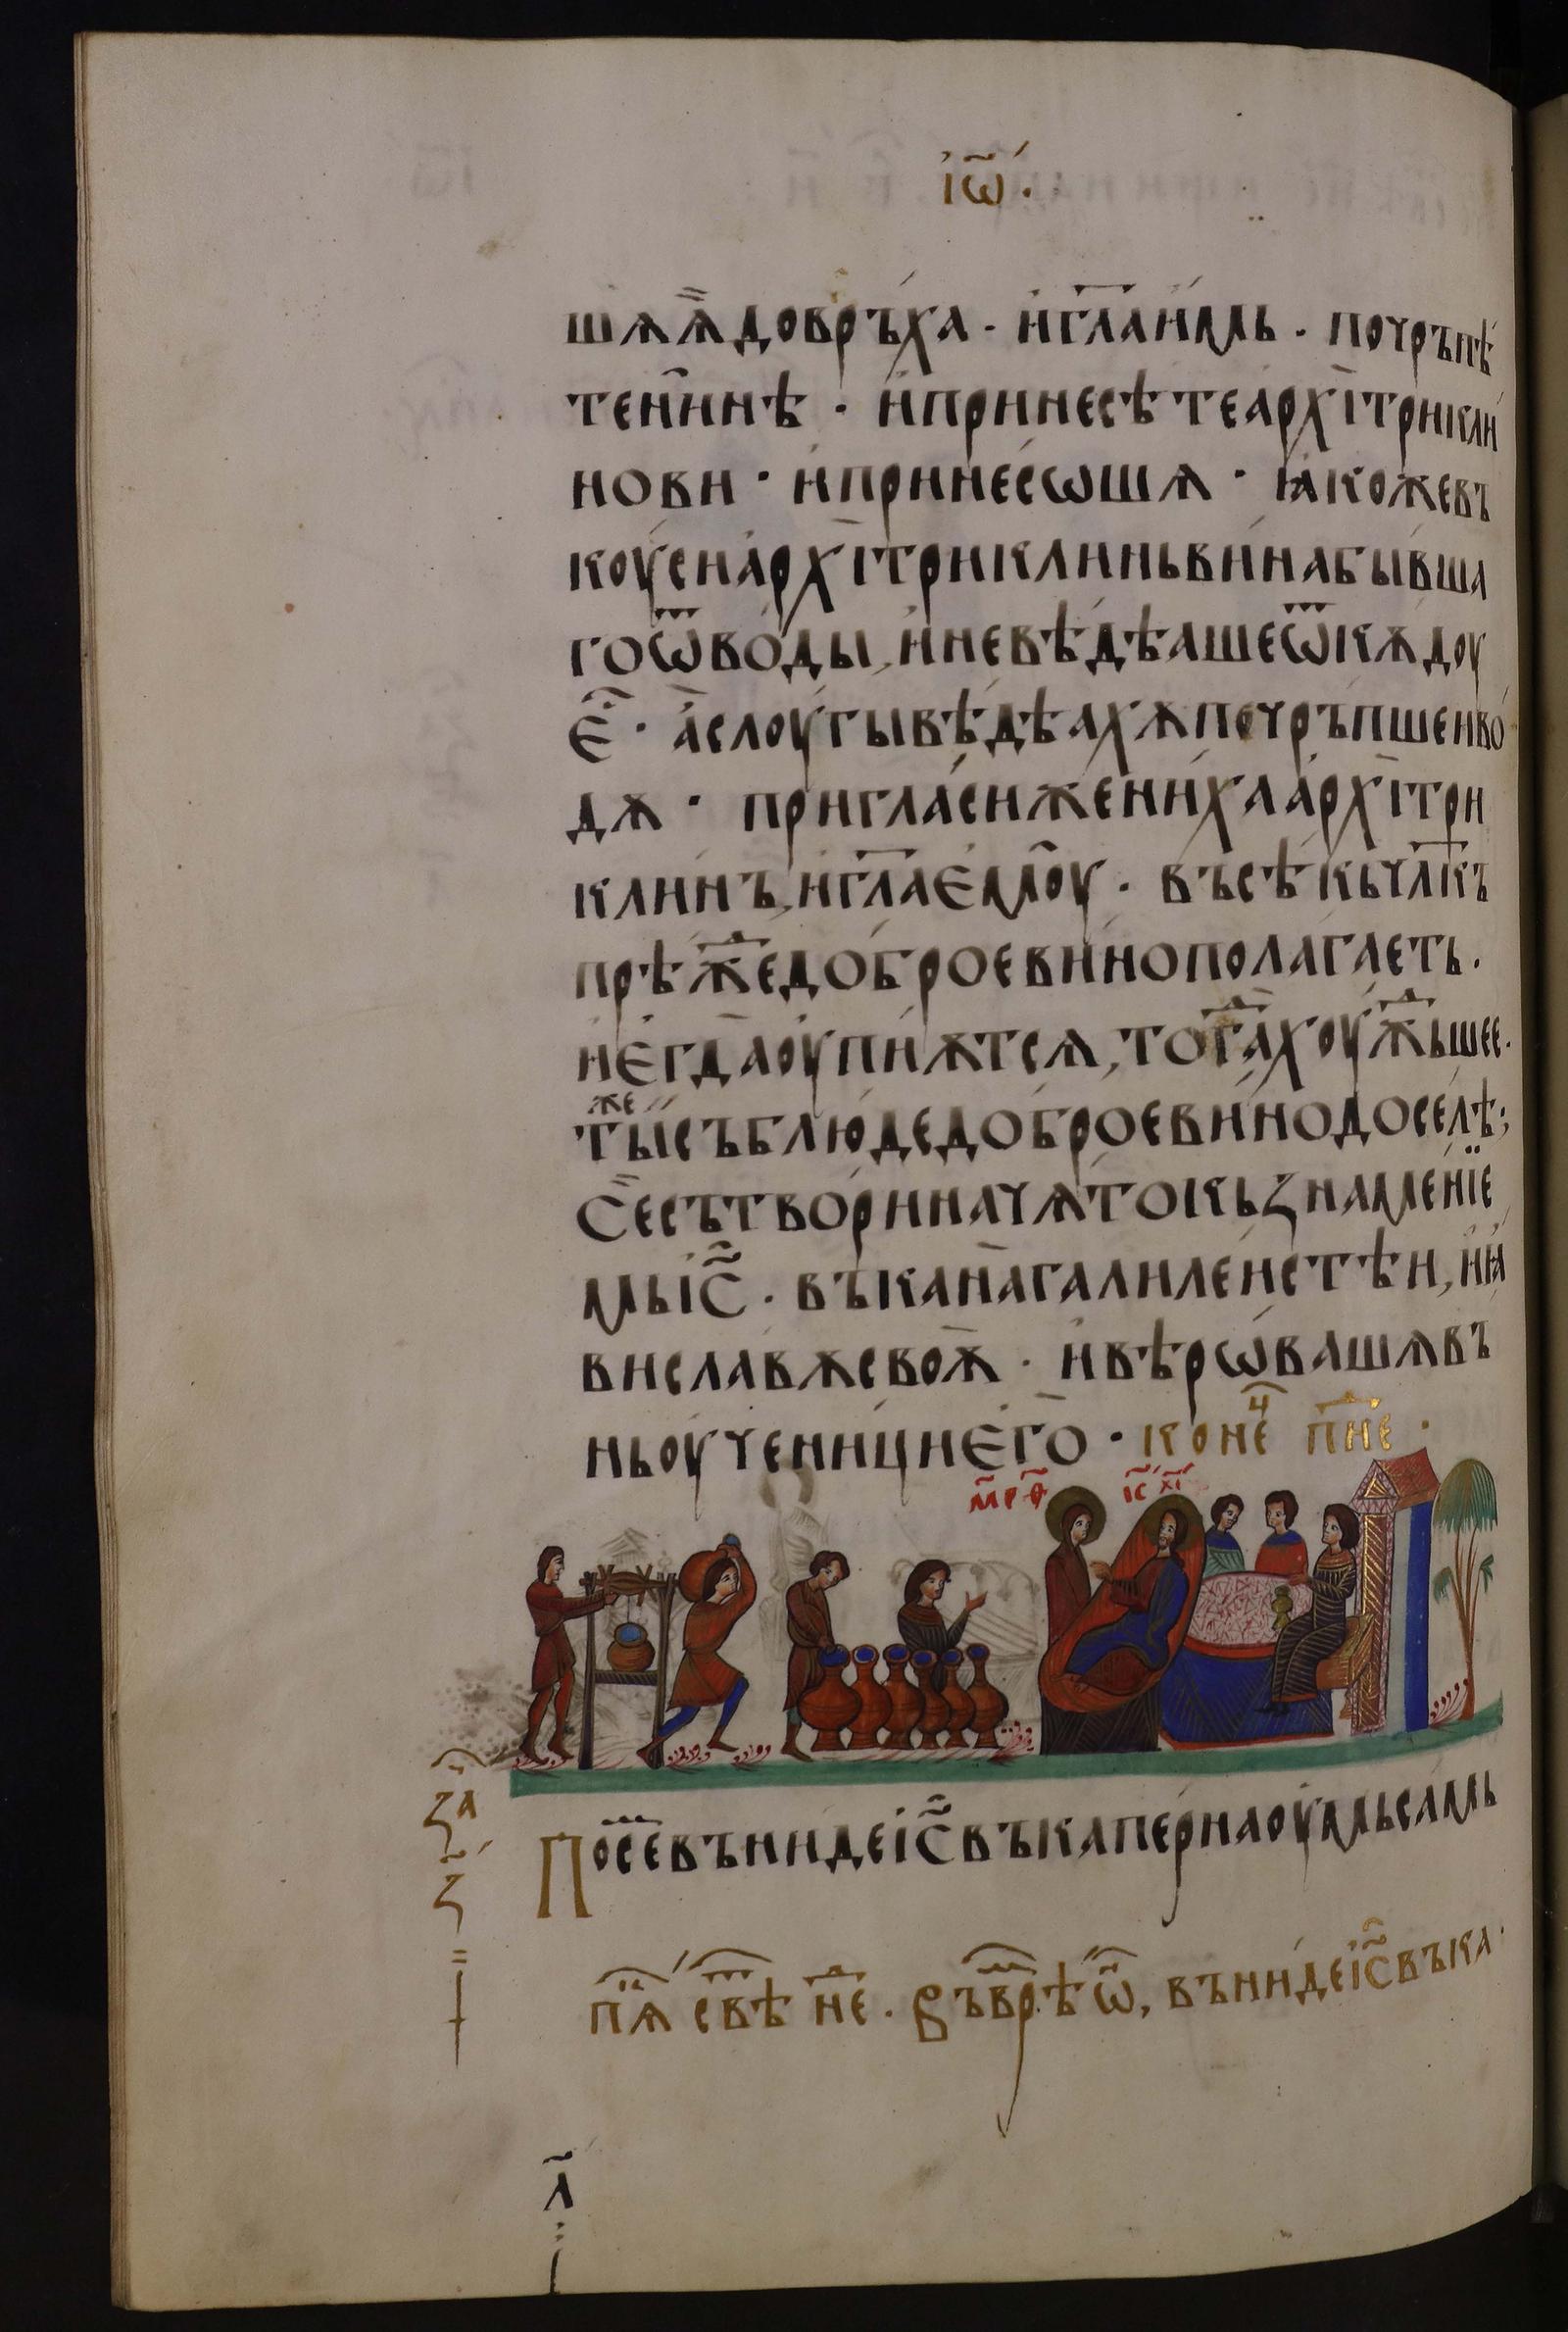 і҆ѡ҃.
шѧѫ҆довръ́ха · и҆гл҃аи҆́мь · почръпѣ́
тени҆нѣ · и҆принесѣ́теархі̀трикли́
нови · и҆прине́сѡшѧ · ꙗ҆́кожевъ
коу́сиархі̀триклиньви́набы́вша
гоѿводы, и҆невѣ́дѣашеѿкѫдоу
є҆҃ · а҆слоугы̀вѣ́дѣахѫпочръ́пшеиво́
дѫ · пригла́сиженихаархі̀три
кли́нъ, и҆гл҃аємоу̑ · въсѣ́кьчл҃къ
прѣ́жⷣедоброеви́нополагаеть ·
и҆єгда̀оупиѫтсѧ, тогⷣахоужⷣьшее ·
же
ты̀съблю́дедоброеви́нодосе́лѣ;
Се̏сътвориначѧтокьзнаме́нїе
мьі҆с҃ · въкана̀галиле́истѣи, и҆ꙗ
висла́вѫсвоѫ̀ · и҆вѣ́рѡвашѧвъ
ньоу҆чени́циєго̀ · конеⷱ҇ пнⷣе ·
мр҃ѳ҃ і҆с҃ х҃і
за҃
з҃
По́севъни́деі҆с҃въкапе́рнаоумьса́мь
пѧ҃ свѣ не . Въврѣⷨ ѿ, въни́деі҆с҃въка ·
л҃